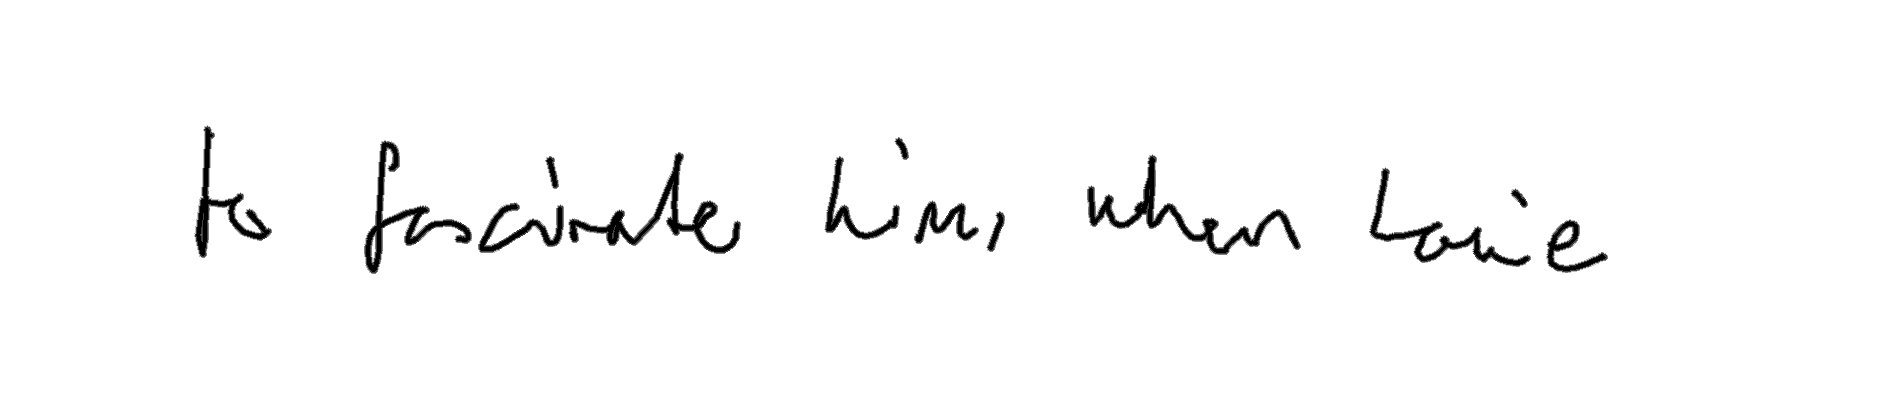 to fascinate him, when Louie